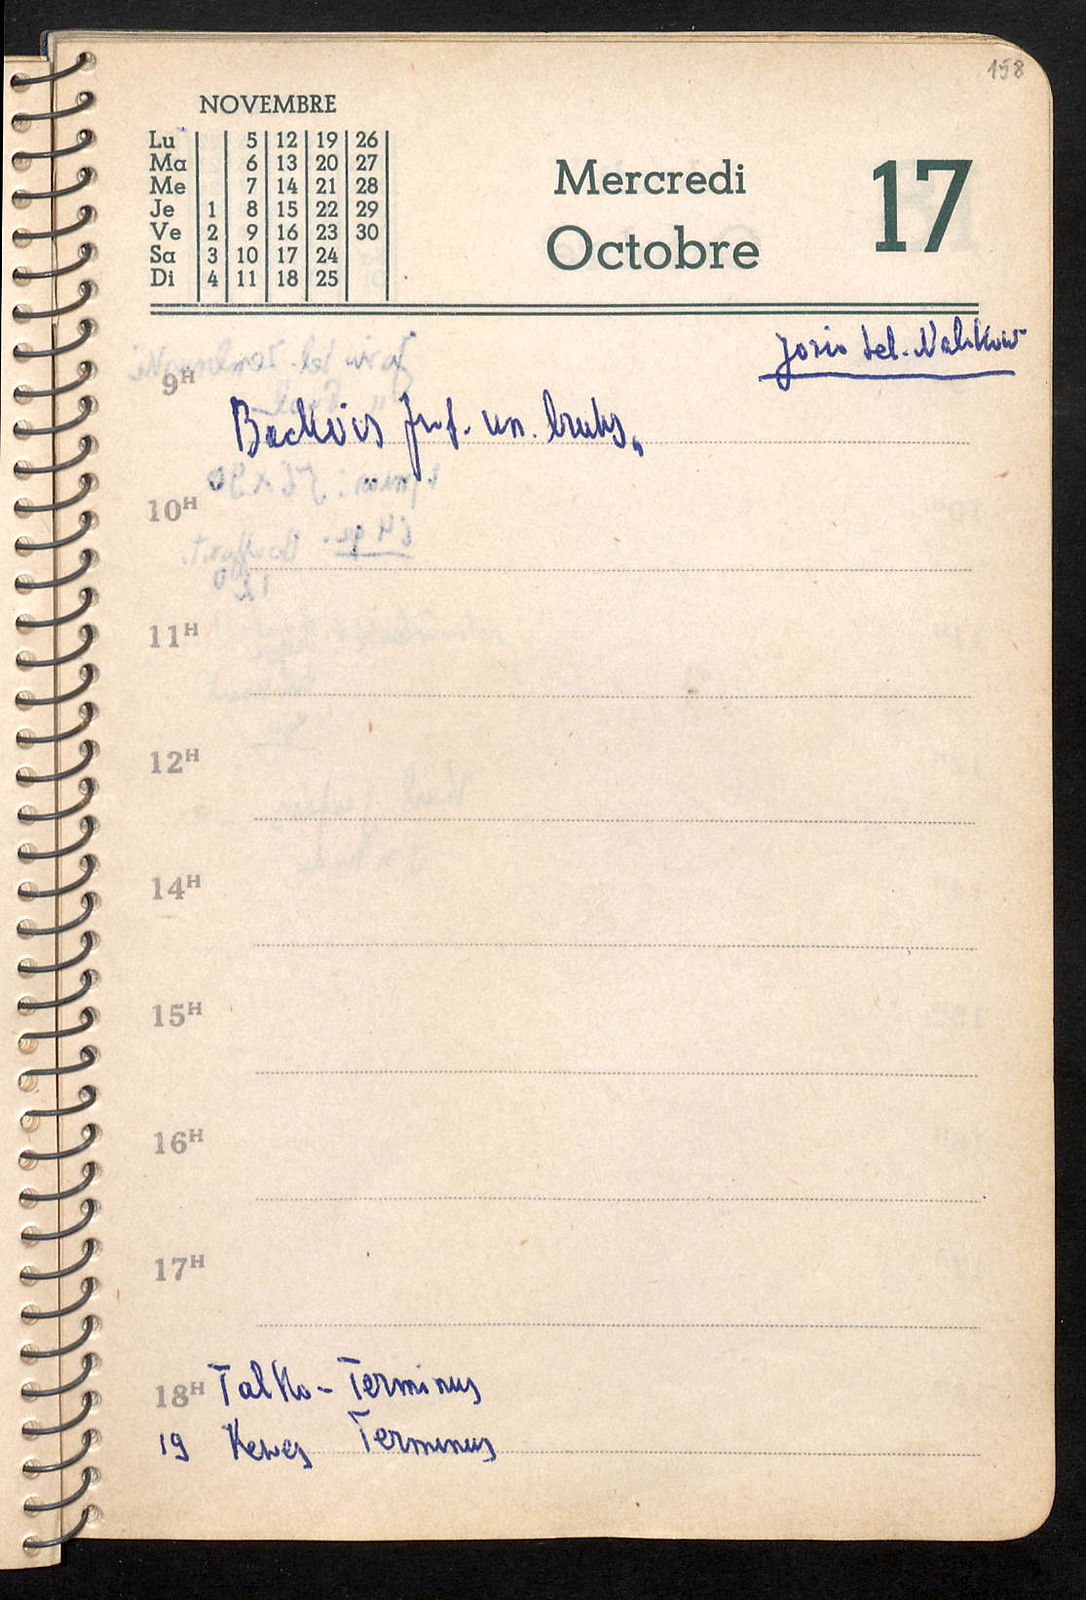 158
NOVEMBRE
Lu 5 12 19 26
Ma 6 13 20 27
Me 7 14 21 28
Je 1 8 15 22 29
Ve 2 9 16 23 30
Sa 3 10 17 24
Di 4 11 18 25
Mercredi 17
Octobre
tel.
9H
Backvis prof. un. bruks.
10H
11H
12H
14H
15H
16H
17H
18H Talko - Terminus
19 Kewes Terminus